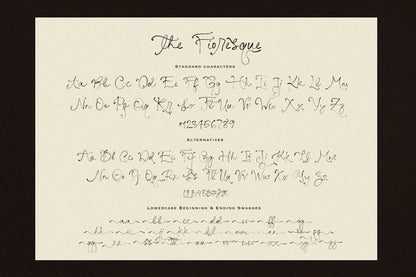 The Fioresque
STANDARD CHARACTERS
Aa Bb Cc Dd Ee Ff Gg Hh Ii Jj Kk Ll Mm
Nn Oo Pp Qq Rr Ss Tt Uu Vv Ww Xx Yy Zz
123456789
ALTERNATIVES
Aa Bb Cc Dd Ee Ff Gg Hh Ii Jj Kk Ll Mm
Nn Oo Pp Qq Rr Ss Tt Uu Vv Ww Xx Yy Zz
123456789
LOWERCASE BEGINNING & ENDING SWASHES